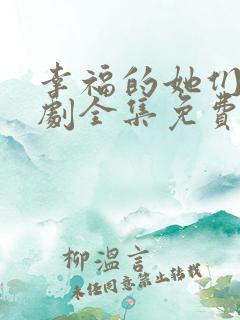 幸福的她们
劇全集免費
柳溫言
未经同意禁止转载